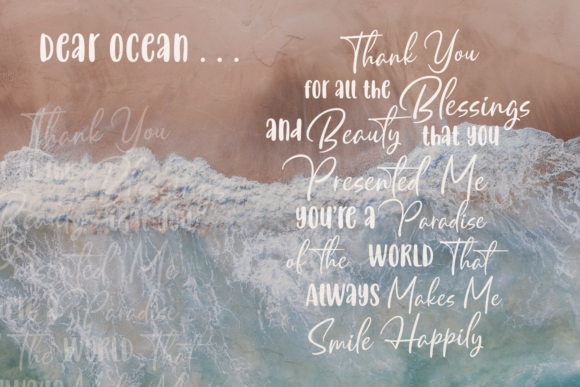 Dear Ocean . . .
Thank You
for all the Blessings
and Beauty that you
Presented Me
you're a Paradise
of the WORLD That
ALWAYS Makes Me
Smile Happily
Thank You
Beauty that you
Presented Me
re a Paradise
The WORLD That